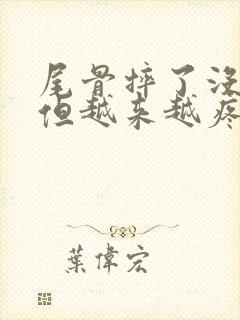 尾骨摔了没
但越来越疼
葉偉宏